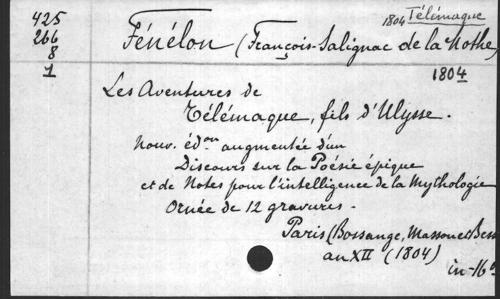 425
266
8
1
1804 Télémaque
Fénélon (François-Salignac de la Mothe)
1804
Les Aventures de
Télémaque, fils d'Ulysse.
Nouv. éd.on augmentée d'un
Discours sur la Poésie épique
et de Notes pour l'intelligence de la Mythologie
Ornée de 12 gravures.
Paris (Bossange, Masson et Bess
an XII (1804)
in-16°